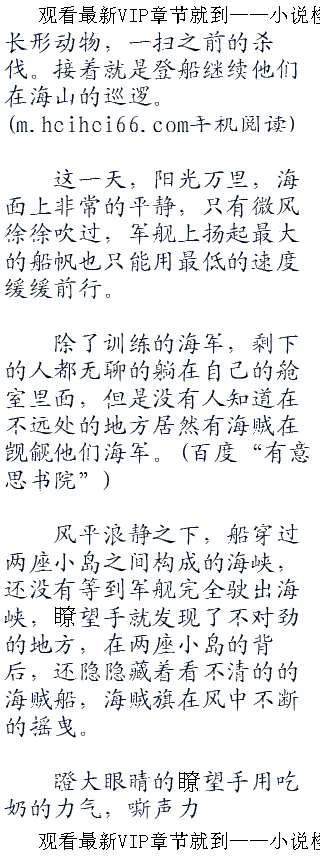 观看最新VIP章节就到——小说检
长形动物，一扫之前的杀
伐。接着就是登船继续他们
在海山的巡逻。
(m.hcihci66.com手机阅读)
这一天，阳光万里，海
面上非常的平静，只有微风
徐徐吹过，军舰上扬起最大
的船帆也只能用最低的速度
缓缓前行。
除了训练的海军，剩下
的人都无聊的躺在自己的舱
室里面，但是没有人知道在
不远处的地方居然有海贼在
觊觎他们海军。(百度“有意
思书院”)
风平浪静之下，船穿过
两座小岛之间构成的海峡，
还没有等到军舰完全驶出海
峡，瞭望手就发现了不对劲
的地方，在两座小岛的背
后，还隐隐藏着看不清的的
海贼船，海贼旗在风中不断
的摇曳。
瞪大眼睛的瞭望手用吃
奶的力气，嘶声力
观看最新VIP章节就到——小说检